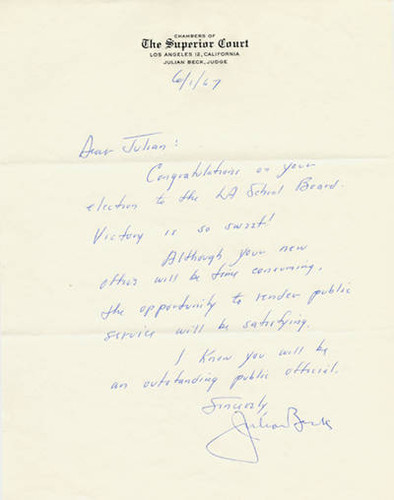 CHAMBERS OF
The Superior Court
LOS ANGELES 12, CALIFORNIA
JULIAN BECK, JUDGE
6/1/67
Dear Julian:
Congratulations on your
election to the LA School Board.
Victory is so sweet!
Although your new
office will be time consuming,
the opportunity to render public
service will be satisfying.
I know you will be
an outstanding public official.
Sincerely,
Julian Beck